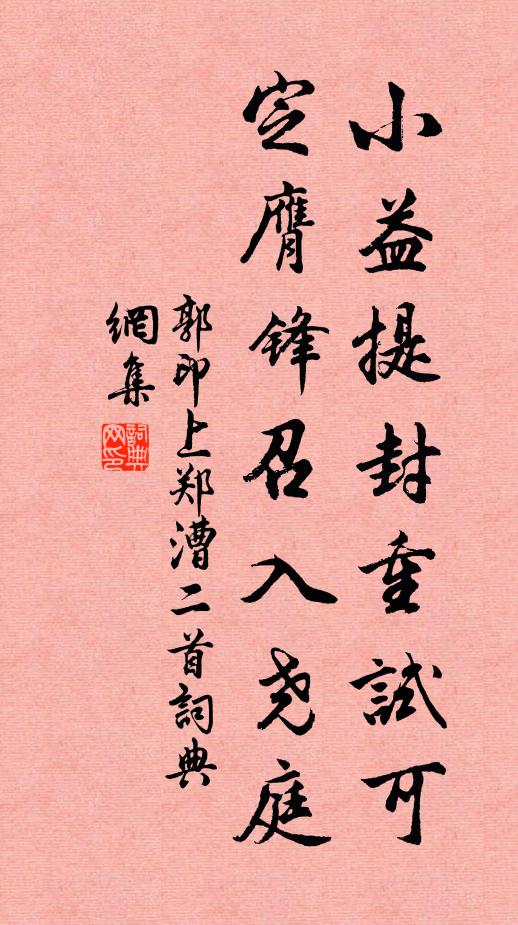 小益提封重試可
定膺鋒召入尧庭
郭印上郑漕二首詞典
網集
詞典
网印